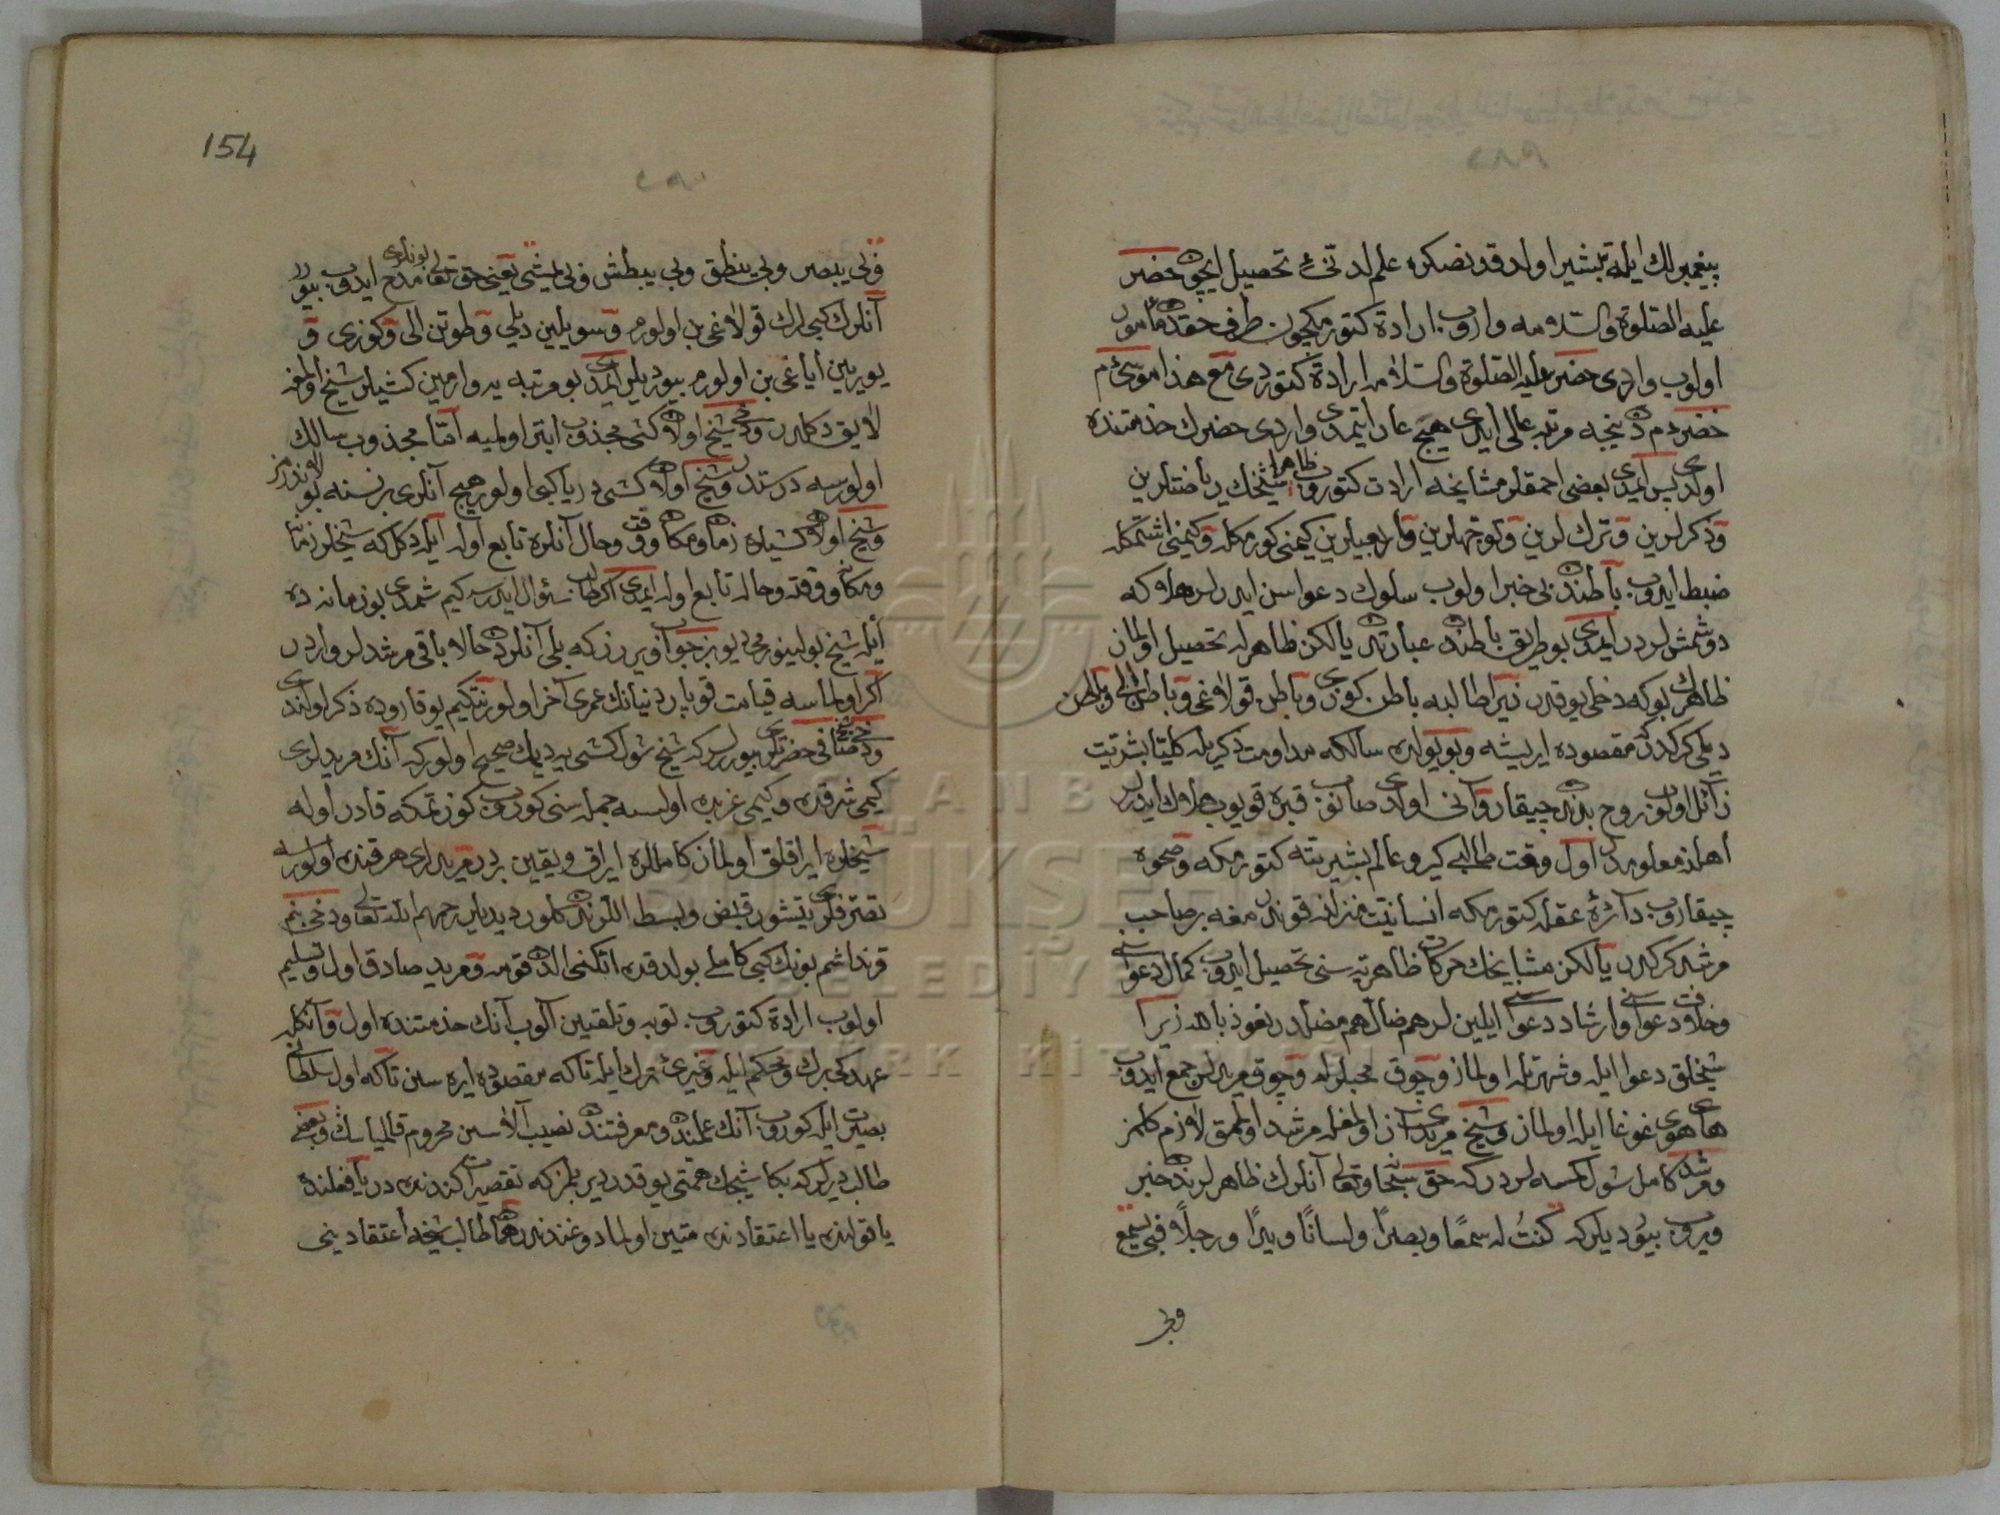 پیغمبرلك ایله تبشیر اولدقدنصکره علم لدنّئ تحصیل ایچون حضر
علیه الصّلوة والسّلامه واروب ارادة کتورمکچون طرف حقدن مأمور
اولوب واردی حضر علیه الصّلوة والسّلامه ارادة کتوردی مع هذا موسیٔ م
حضردم نیجه مرتبه عالی ایدی هیچ عار ایتمدی واردی حضرك خذمتنده
اولدی پس ایمدی بعضی احمقلر مشایخه ارادت کتوروب ظاهرا شیخك ریاضتلرین
وذکرلرین وترك لرین وتوجّهلرین وأربعینلرین کیمنی کورمکله وکیمنی اشتمکله
ضبط ایدوب باطندن بی خبر اولوب سلوك دعواسن ایدرلر هلاکه
دوشمشلردر ایمدی بو طریق باطندن عبارتدر یالکز ظاهرله تحصیل اولماز
ظاهرك بوکه دخلی یوقدر زیرا طالبه باطن کوزی وباطن قولاغی وباطن الی وباطن
دیلی کرکدرکه مقصوده ایریشه وبو یولده سالکه مداومت ذکریله کلیّا بشریّت
زائل اولوب روح بدندن چیقار وآنی اولدی صانوب قبره قویوب هلاك ایدرلر
أهلنه معلومدر اول وقت طالبی کیرو عالم بشریّته کتورمکه وصحوه
چیقاروب دآئرهٔ عقله کتورمکه انسانیّت منزلنه قوندرمغه بر صاحب
مرشد کرکدر یالکز مشایخك حرکات ظاهریّه سنی تحصیل ایدوب کمال دعواسی
وخلافت دعواسی وارشاد دعواسی ایلین لر هم ضالّ هم مضلّدر نعوذ بالله زیرا
شیخلق دعوا ایله وشهرتله اولماز وچوق محبلرله وچوق مریدلر جمع ایدوب
های هوی غوغا ایله اولماز وشیخ مریدی آز اولمغله مرشد اولممق لازم کلمز
ومرشد کامل شول کمسه لردرکه حق سبحانه وتعالی آنلرك ظاهرلرندن خبر
ویروب بیوردیلرکه کنتُ له سمعًا وبصرًا ولسانًا ویدًا ورجلًا فبی یسمع
وبی
154
وبی یبصر وبی ینطق وبی یبطش وبی یمشی یعنی حق تعالی بونلری مدح ایدوب بیورر
آنلرك کبی لرك قولاغی بن اولورم وسویلین دیلی وطوتن الی وکوزی و
یورین أیاغی بن اولورم بیوردیلر ایمدی بو مرتبه یه وارمین کشیلر شیخ اولمغه
لایق دکلدر ودخی شیخ اولان کشی مجذوب ابتر اولمیه أمّا مجذوب سالك
اولورسه درستدر وشیخ اولان کشی دریا کبی اولور هیچ آنلری بر نسنه بولاندرمز
وشیخ اولان کشیلره زمان ومکان ووقت وحال آنلره تابع اوله ایله دکلکه شیخلر زمان
ومکان ووقته وحاله تابع اوله ایمدی اکر طالب سئوال ایدرسه کیم شمدی بو زمانه ده
أیله شیخ بولینورمی دیو بز جواب ویررزکه بلی آنلردن حالا باقی مرشدلر واردر
اکر اولماسه قیامت قوپار دنیانك عمری آخر اولور نتکیم یوقاروده ذکر اولندی
ودخی شیخ صافی حضرتلری بیوررلرکه شیخ شول کشی یه دیمك صحیح اولورکه آنك مریدلری
کیمی شرقده وکیمی غربده اولسه جمله سنی کوروب کوزتمکه قادر اوله
شیخلره ایراقلق اولماز کاملاره ایراق ویقین بردر مریدلری هر قنده اولورسه
تصرّفلری یتشور قبض وبسط اللرندن کلور دیدیلر رحمهم الله تعالی ودخی بنم
قرنداشم بونك کبی کاملی بولدقده اتکنی الدن قومه ومرید صادق اول وتسلیم
اولوب ارادة کتوروب توبه وتلقین آلوب آنك خذمتنده اول وآنکله
عهدکی برك ومحکم ایله وغیرئ ترك ایله تاکه مقصوده ایره سین تاکه اول سلطانی
بصیرت ایله کوروب آنك علمندن ومعرفتندن نصیب آلاسین محروم قالمیاسك وبعضی
طالب دیرلرکه بکا شیخك همّتی یوقدر دیر بلمزکه تقصیرات کندنده در یا فعلنده
یا قولنده یا اعتقادنده متین اولمادوغندندر همان طالب شیخه أعتقادینی